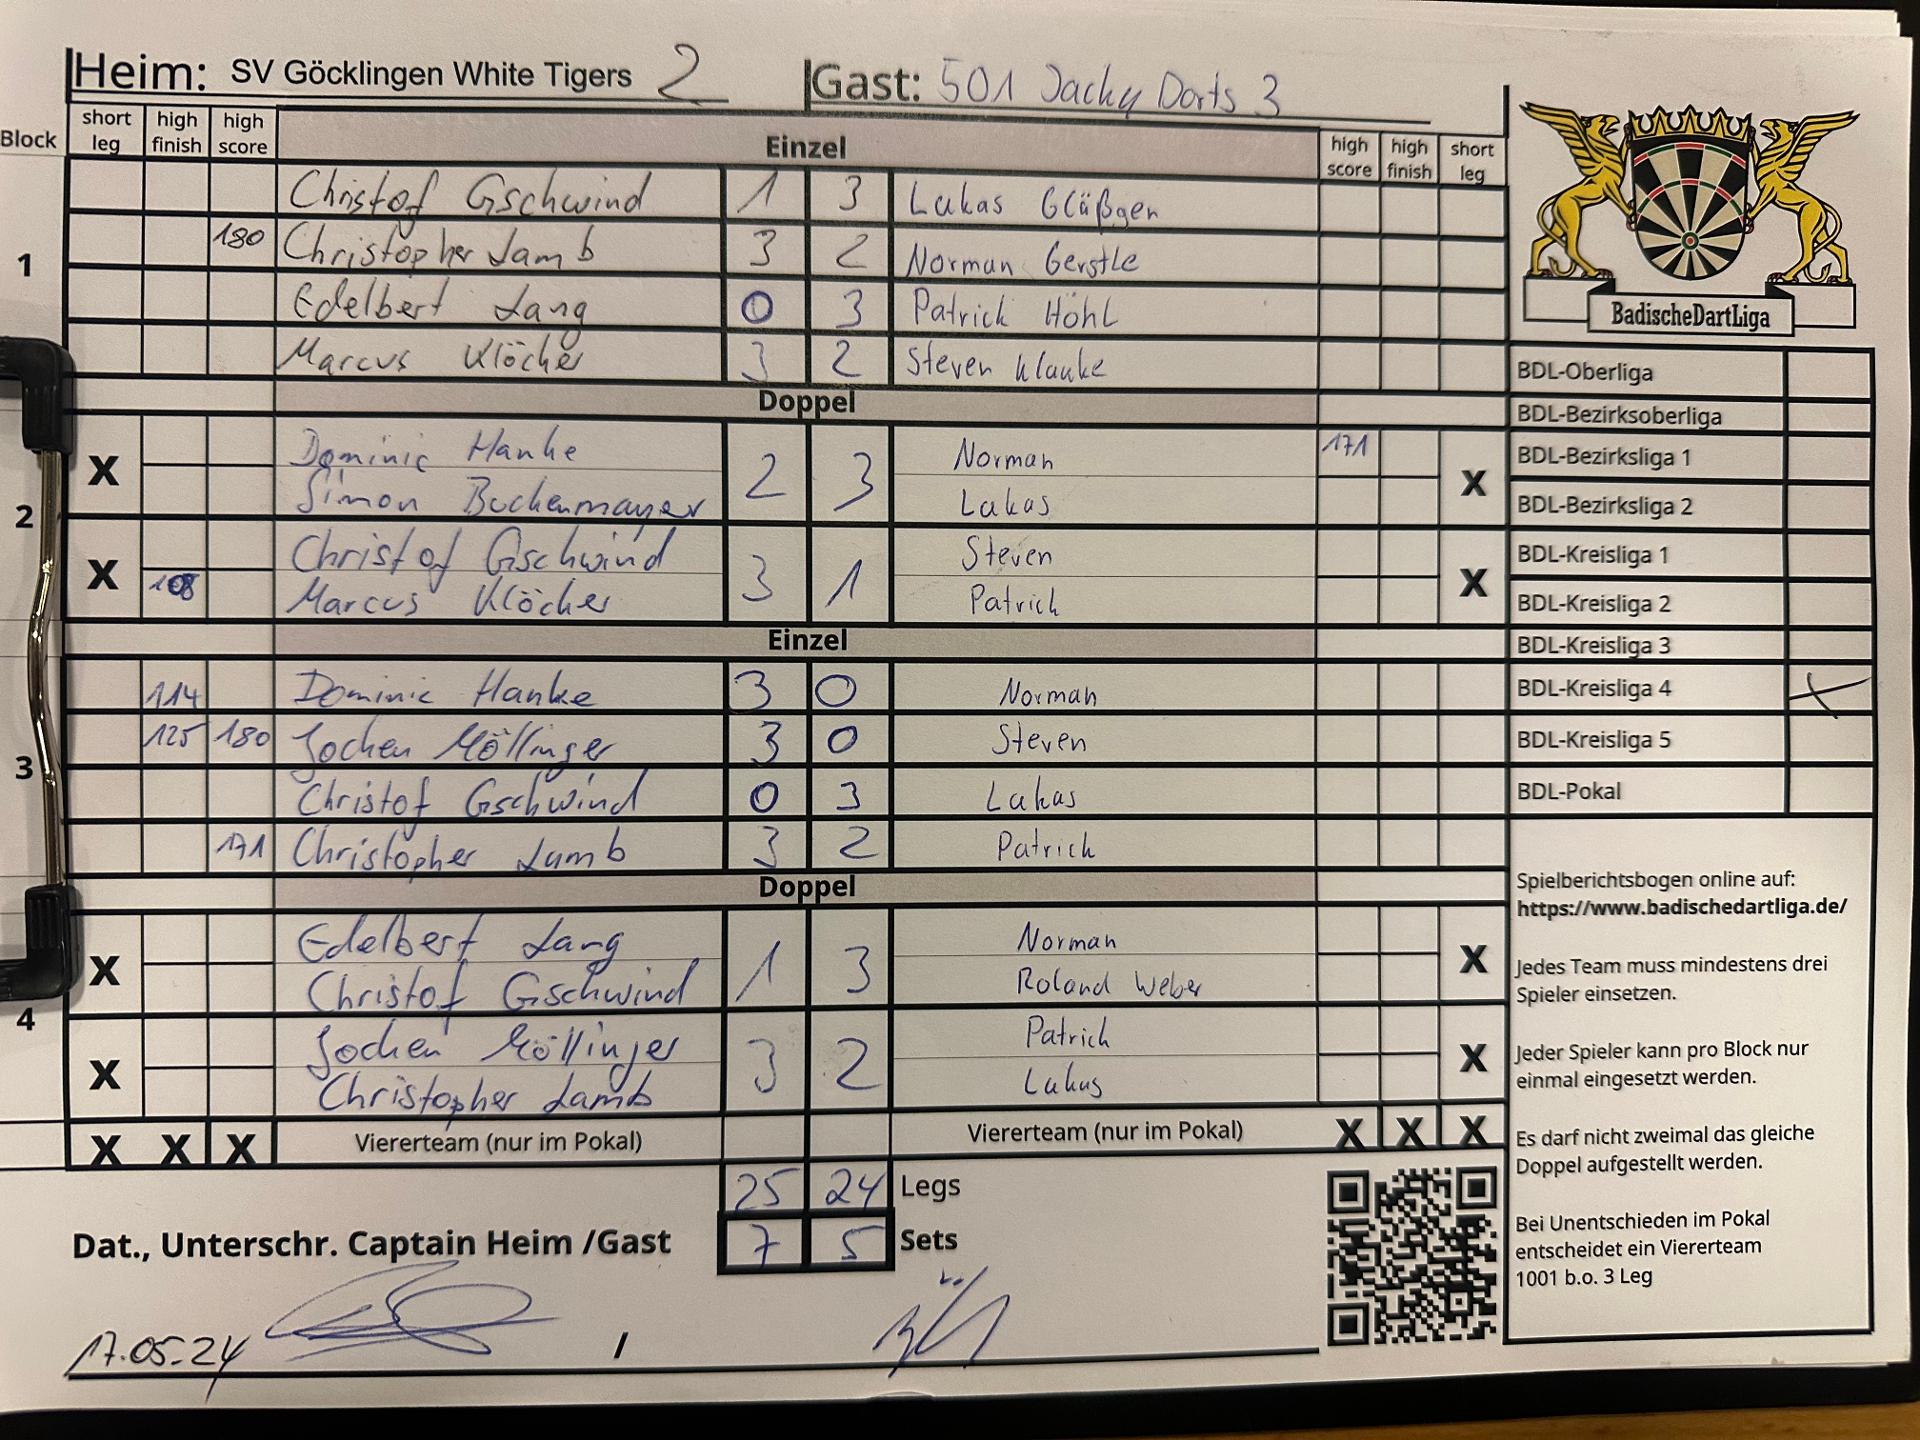 Heim: SV Göcklingen White Tigers 2 Gast: 501 Jacky Darts 3
Block short leg high finish high score Einzel high score high finish short leg
1
Christof Gschwind 1 3 Lukas Gläßgen
180 Christopher Lamb 3 2 Norman Gerstle
Edelbert Lang 0 3 Patrick Höhl
Marcus Klöcher 3 2 Steven Klauke
Doppel
2
X Dominic Hanke 2 3 Norman 171 X
Simon Buckenmayer Lukas
X Christof Gschwind 3 1 Steven X
108 Marcus Klöcher Patrick
Einzel
3
114 Dominic Hanke 3 0 Norman
125 180 Jochen Möllinger 3 0 Steven
Christof Gschwind 0 3 Lukas
171 Christopher Lamb 3 2 Patrick
Doppel
4
X Edelbert Lang 1 3 Norman X
Christof Gschwind Roland Weber
X Jochen Möllinger 3 2 Patrick X
Christopher Lamb Lukas
X X X Viererteam (nur im Pokal) Viererteam (nur im Pokal) X X X
25 24 Legs
Dat., Unterschr. Captain Heim /Gast 7 5 Sets
17.05.24 /
BadischeDartLiga
BDL-Oberliga
BDL-Bezirksoberliga
BDL-Bezirksliga 1
BDL-Bezirksliga 2
BDL-Kreisliga 1
BDL-Kreisliga 2
BDL-Kreisliga 3
BDL-Kreisliga 4 X
BDL-Kreisliga 5
BDL-Pokal
Spielberichtsbogen online auf:
https://www.badischedartliga.de/
Jedes Team muss mindestens drei
Spieler einsetzen.
Jeder Spieler kann pro Block nur
einmal eingesetzt werden.
Es darf nicht zweimal das gleiche
Doppel aufgestellt werden.
Bei Unentschieden im Pokal
entscheidet ein Viererteam
1001 b.o. 3 Leg